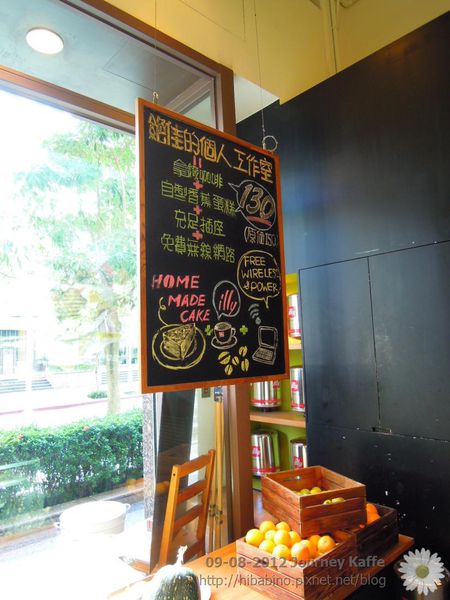 絕佳的個人工作室
拿鐵咖啡
+
自型香蕉蛋糕
+
充足插座
+
免費無線網路
130
(原價150)
FREE
WIRELESS
&POWER
HOME
MADE
CAKE
illy
09-08-2012 Journey Kaffe
http://hibabino.pixnet.net/blog